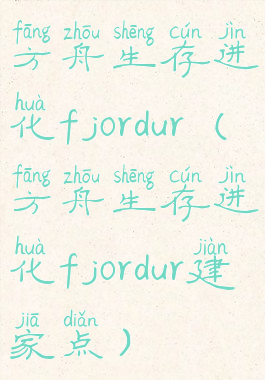 fāng zhōu shēng cún jìn
方舟生存进
huà
化fjordur（
fāng zhōu shēng cún jìn
方舟生存进
huà jiàn
化fjordur建
jiā diǎn
家点）